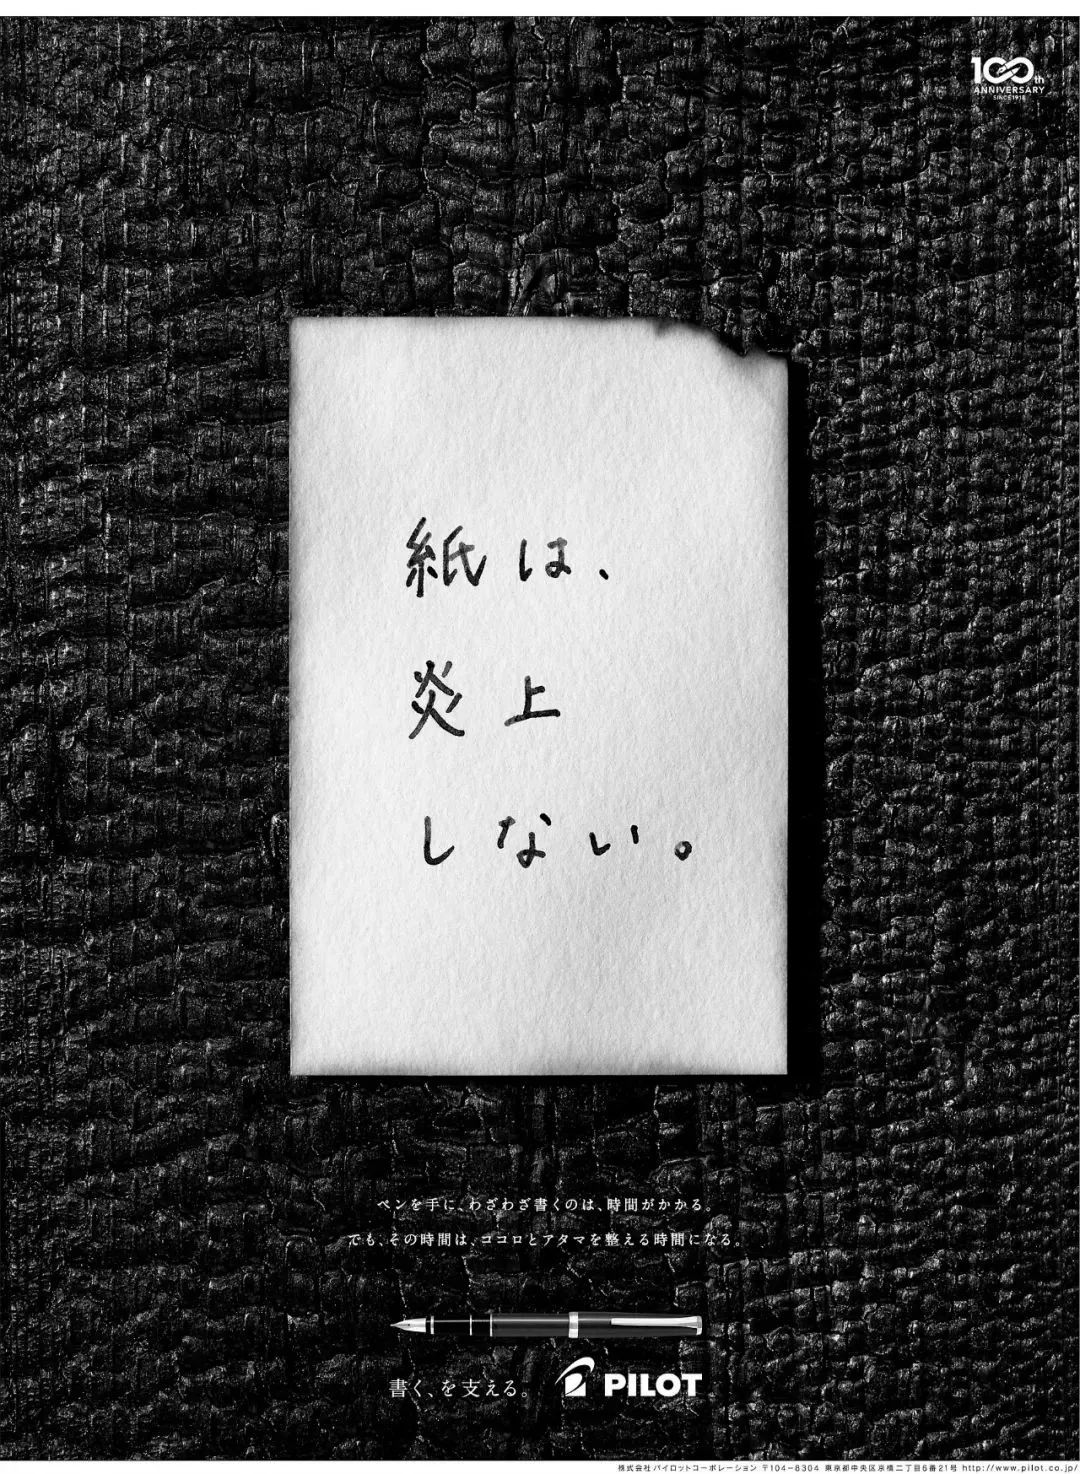 100th
ANNIVERSARY
SINCE 1918
紙は、
炎上
しない。
ペンを手に、わざわざ書くのは、時間がかかる。
でも、その時間は、ココロとアタマを整える時間になる。
書く、を支える。
PILOT
株式会社パイロットコーポレーション 〒104-8304 東京都中央区京橋二丁目6番21号 http://www.pilot.co.jp/